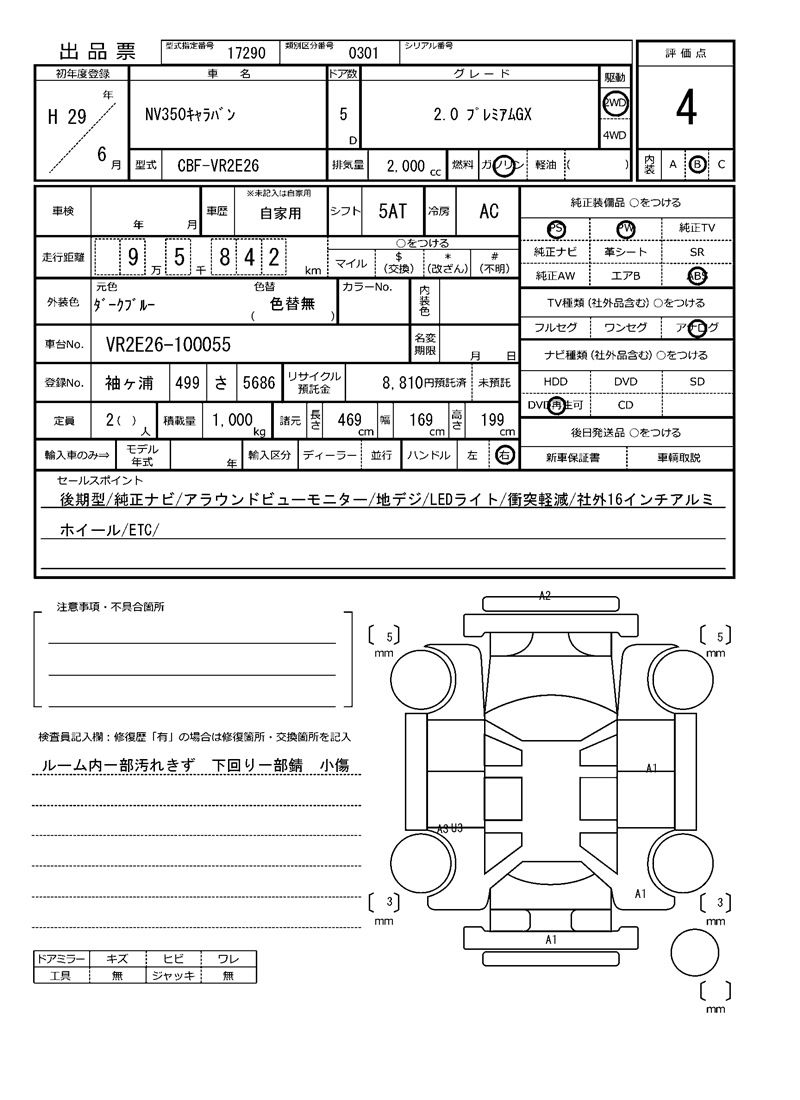 出品票 型式指定番号 17290 類別区分番号 0301 シリアル番号 評価点
初年度登録 車名 ドア数 グレード 駆動
H 29 年 6 月 NV350ｷｬﾗﾊﾞﾝ 5 D 2.0 ﾌﾟﾚﾐｱﾑGX 2WD 4WD 4
型式 CBF-VR2E26 排気量 2,000 cc 燃料 ガソリン 軽油 ( ) 内装 A B C
車検 年 月 車歴 ※未記入は自家用 自家用 シフト 5AT 冷房 AC 純正装備品 ○をつける
PS PW 純正TV
走行距離 9 万 5 千 8 4 2 km ○をつける 純正ナビ 革シート SR
マイル $ (交換) * (改ざん) # (不明) 純正AW エアB ABS
外装色 元色 ﾀﾞｰｸﾌﾞﾙｰ 色替 ( 色替無 ) カラーNo. 内装色 TV種類 (社外品含む) ○をつける
フルセグ ワンセグ アナログ
車台No. VR2E26-100055 名変期限 月 日 ナビ種類 (社外品含む) ○をつける
登録No. 袖ヶ浦 499 さ 5686 リサイクル預託金 8,810円預託済 未預託 HDD DVD SD
DVD再生可 CD
定員 2 ( ) 人 積載量 1,000 kg 諸元 長さ 469 cm 幅 169 cm 高さ 199 cm 後日発送品 ○をつける
輸入車のみ⇒ モデル年式 年 輸入区分 ディーラー 並行 ハンドル 左 右 新車保証書 車輌取説
セールスポイント
後期型/純正ナビ/アラウンドビューモニター/地デジ/LEDライト/衝突軽減/社外16インチアルミ
ホイール/ETC/
注意事項・不具合箇所
A2
5 mm
5 mm
検査員記入欄：修復歴「有」の場合は修復箇所・交換箇所を記入
ルーム内一部汚れきず 下回り一部錆 小傷
A1
A3 U3
A1
3 mm
3 mm
A1
ドアミラー キズ ヒビ ワレ
工具 無 ジャッキ 無
mm